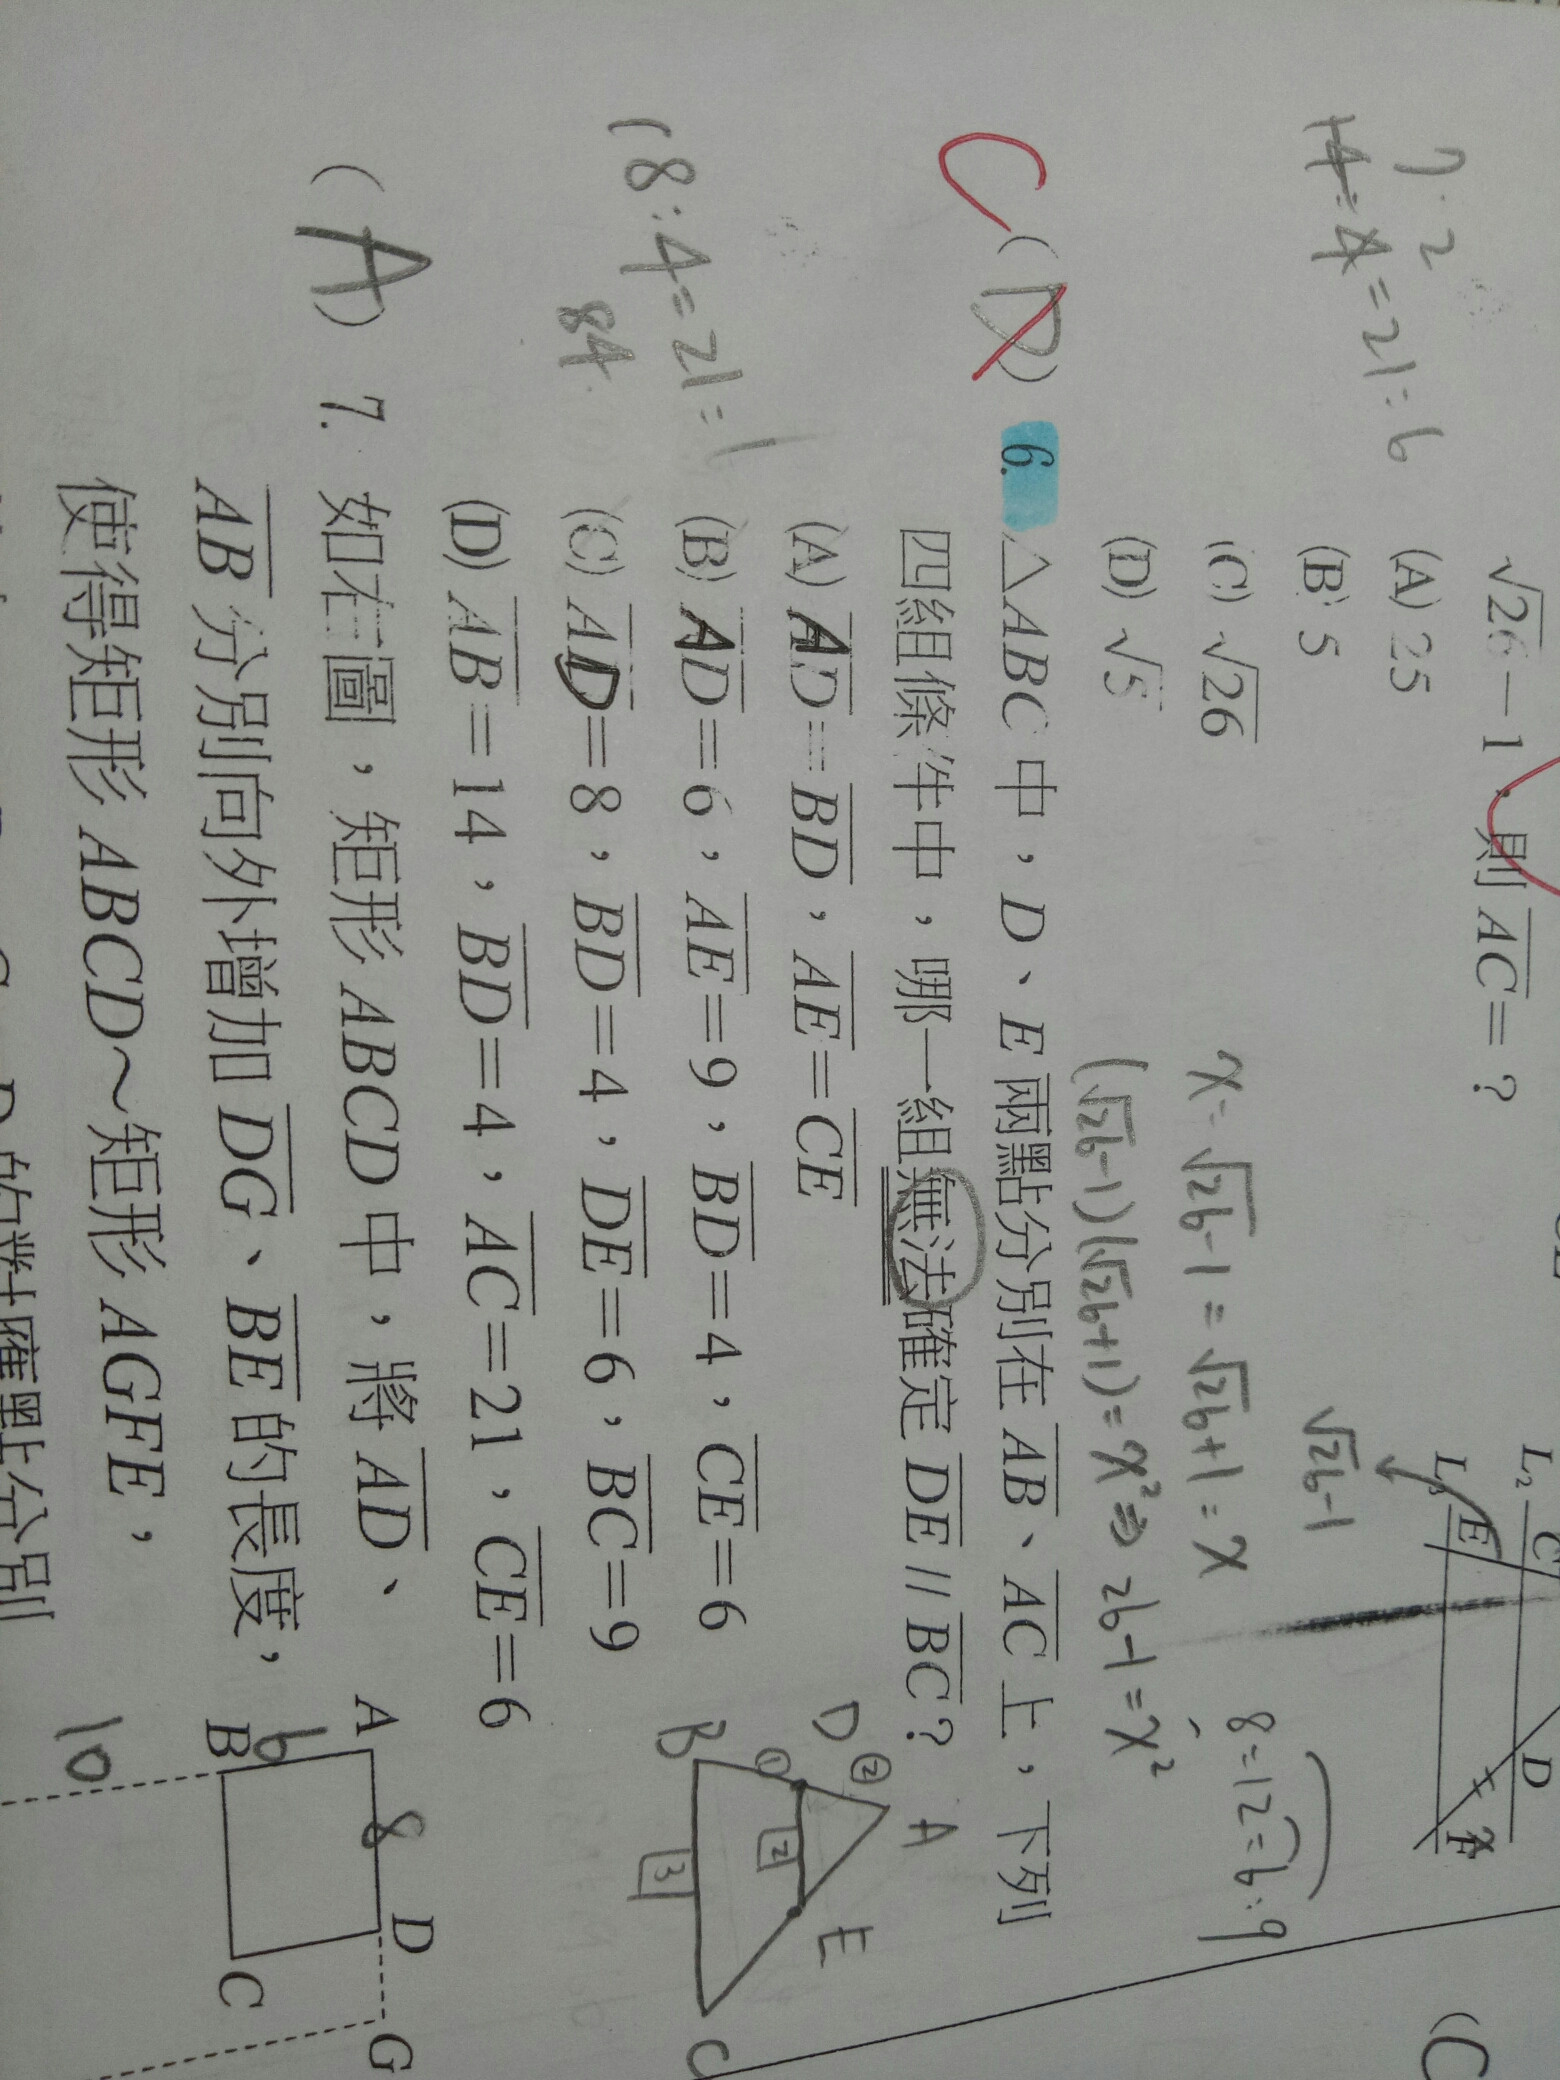 √26−1，則 AC=？
(A) 25
(B) 5
(C) √26
(D) √5
7 2
14:4=21:6
x:√26-1=√26+1:x
(√26-1)(√26+1)=x²⇒26-1=x²
√26-1
8:12=6:9
L₂ C D
L₃ E F x
(C
C (D) 6. △ABC 中，D、E 兩點分別在 AB、AC 上，下列
四組條件中，哪一組無法確定 DE // BC？
(A) AD=BD，AE=CE
(B) AD=6，AE=9，BD=4，CE=6
(C) AD=8，BD=4，DE=6，BC=9
(D) AB=14，BD=4，AC=21，CE=6
18:4=21:1
84
A
D ② E
① 2
B 3 C
(A) 7. 如右圖，矩形 ABCD 中，將 AD、
AB 分別向外增加 DG、BE 的長度，
使得矩形 ABCD～矩形 AGFE，
的對應點分別
A 8 D G
6
B C
10